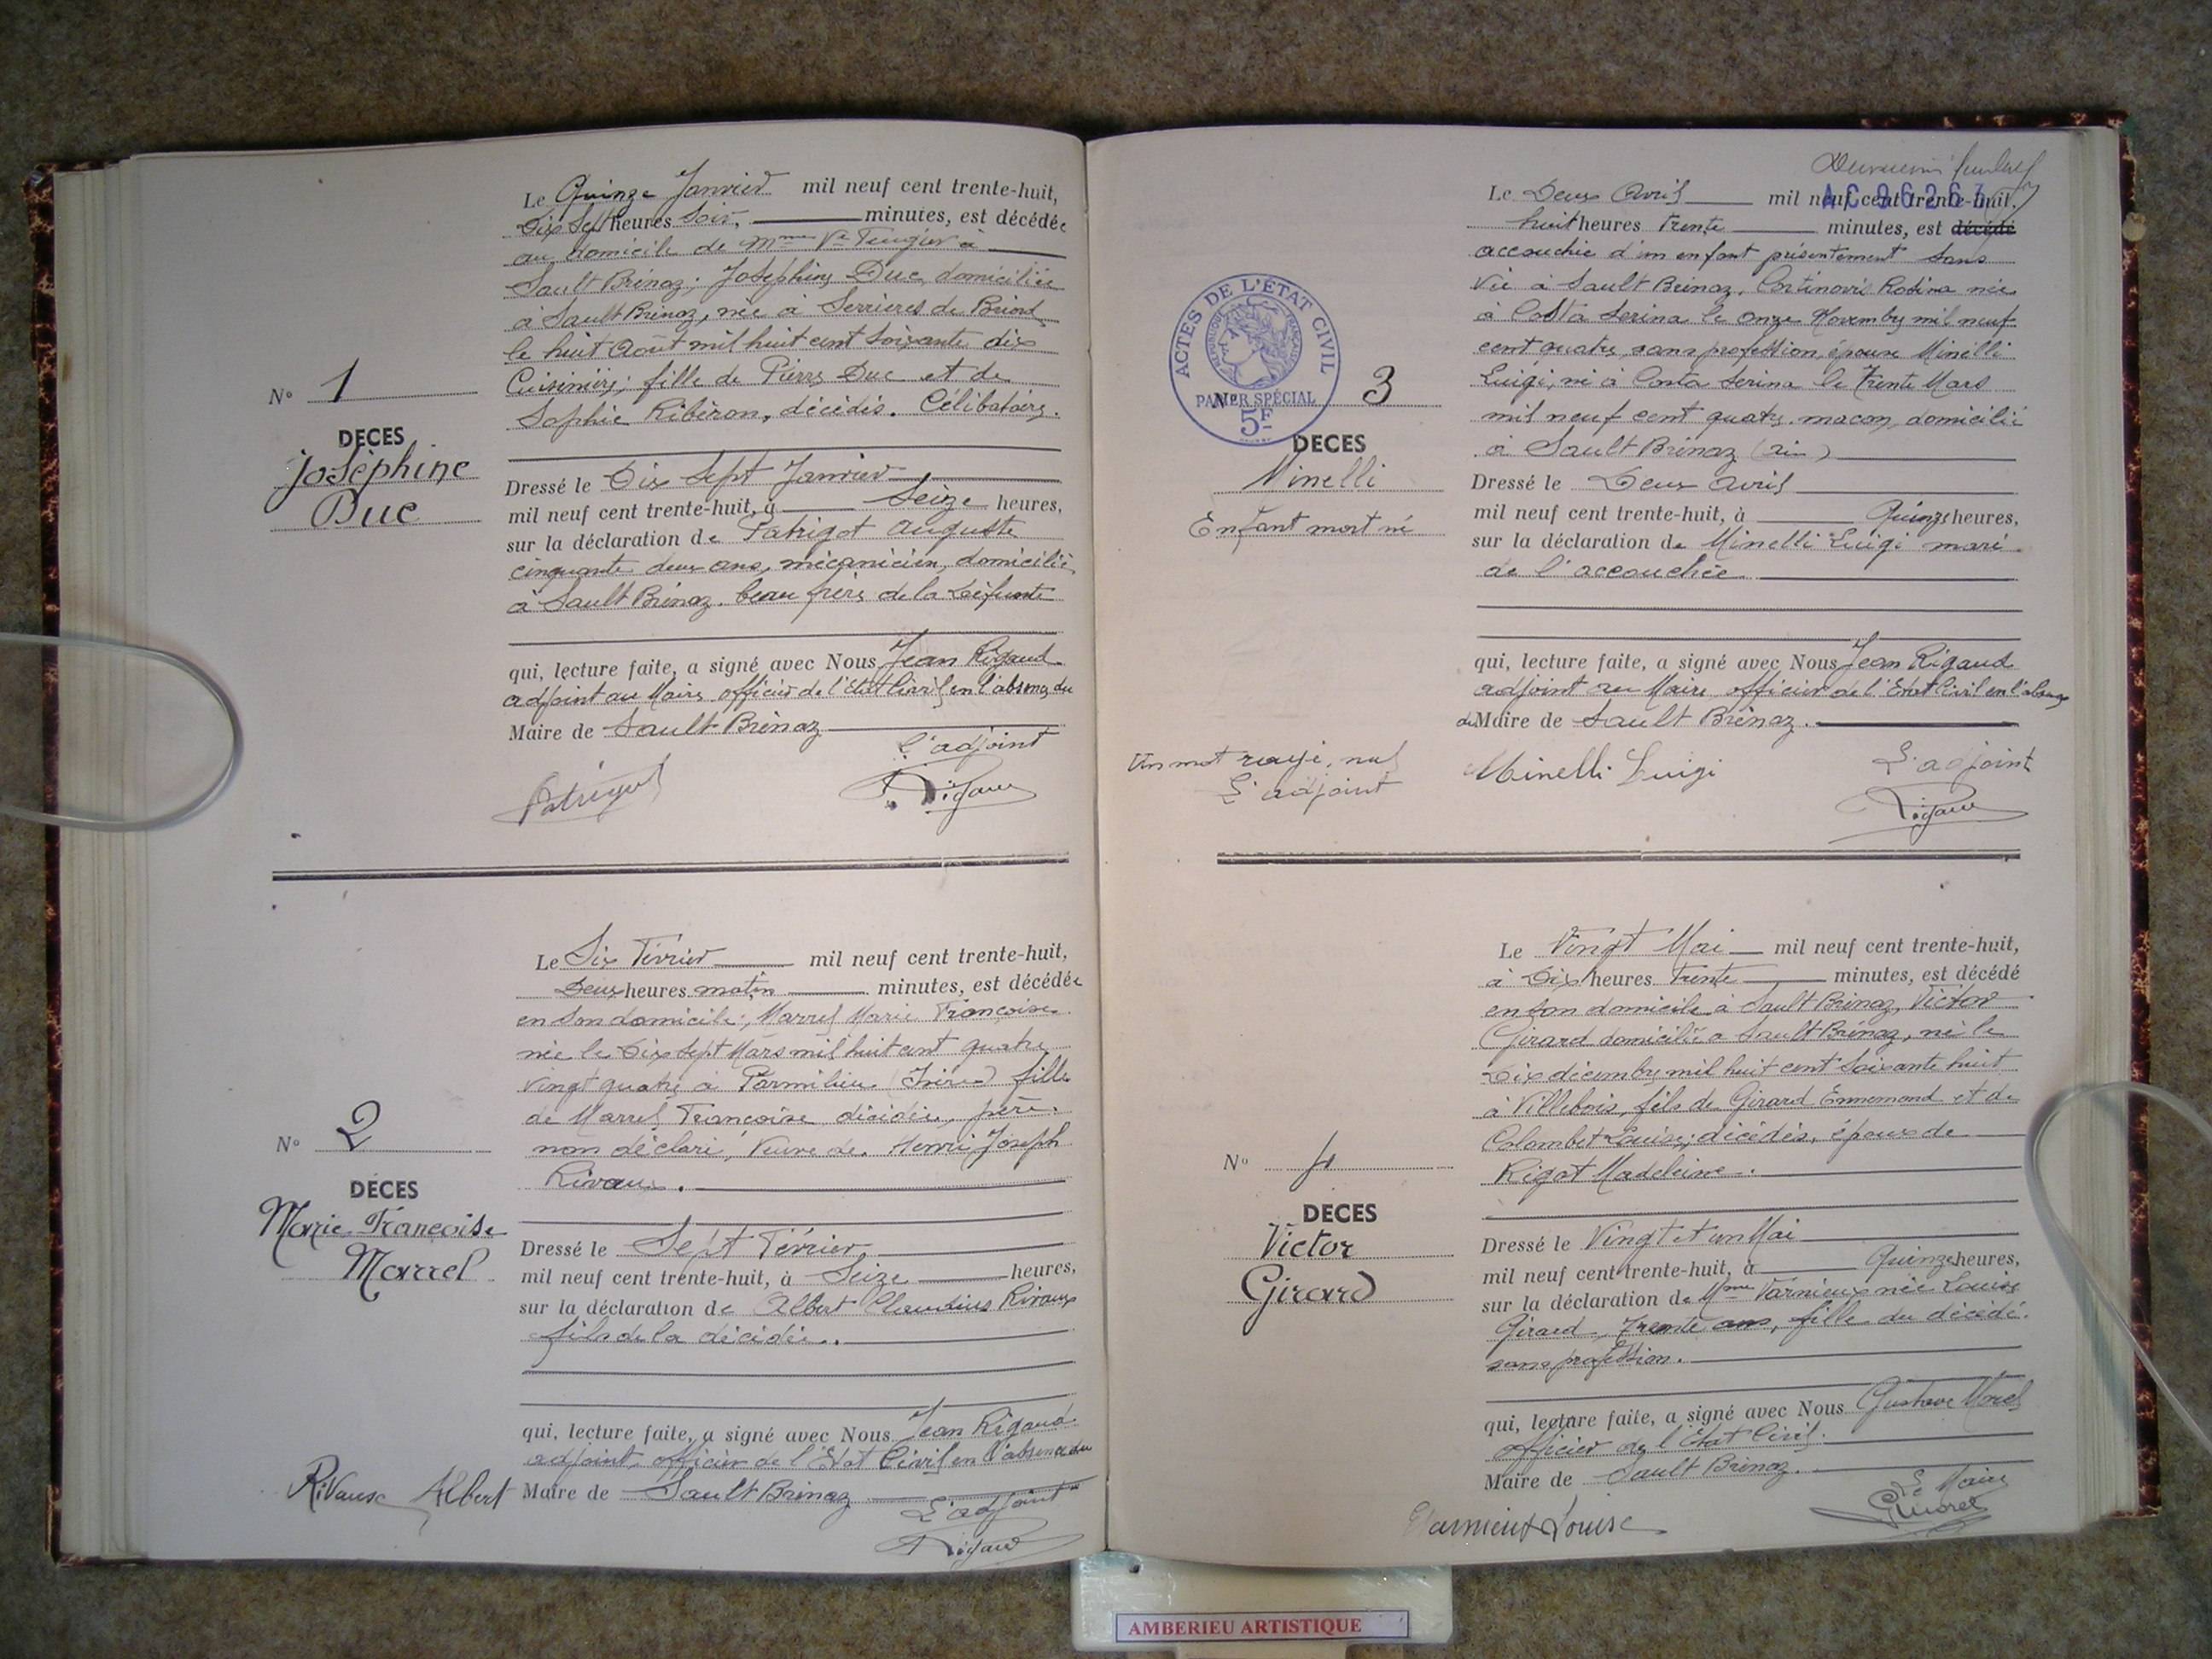 Le Quinze Janvier mil neuf cent trente-huit,
Dix Sept heures Soir, minutes, est décédée
au domicile de Mme Ve Teugier à
Sault Brénaz; Joséphine Duc, domiciliée
à Sault Brénaz, née à Serrieres de Briord
le huit Août mil huit cent soixante dix
Cuisinière; fille de Pierre Duc et de
Sophie Ribéron, décédés. Célibataire.
N° 1
DECES
Joséphine
Duc
Dressé le Dix Sept Janvier
mil neuf cent trente-huit, à Seize heures,
sur la déclaration de Patrigot Auguste
cinquante deux ans, mécanicien, domicilié
à Sault Brénaz. beau frère de la Défunte
qui, lecture faite, a signé avec Nous Jean Rigaud
adjoint au Maire officier de l'Etat Civil en l'absence du
Maire de Sault Brénaz
L'adjoint
Patrigot
Rigaud
Le Six Février mil neuf cent trente-huit,
Deux heures matin minutes, est décédée
en son domicile; Marrel Marie Françoise
née le Dix Sept Mars mil huit cent quatre
vingt quatre à Parmilieu (Isère) fille
de Marrel Françoise décédée, père
non déclaré, Veuve de Henri Joseph
Rivaux.
N° 2
DÉCES
Marie Françoise
Marrel
Dressé le Sept Février,
mil neuf cent trente-huit, à Seize heures,
sur la déclaration de Albert Claudius Rivaux
fils de la décédée.
qui, lecture faite, a signé avec Nous Jean Rigaud
adjoint officier de l'Etat Civil en l'absence du
Maire de Sault Brénaz
Rivaux Albert
L'adjoint
Rigaud
AC 96267
Le Deux Avril mil neuf cent trente-huit,
huit heures trente minutes, est décédé
accouchée d'un enfant présentement sans
vie à Sault Brénaz, Cortinovis Rosina née
à Costa Serina le onze Novembre mil neuf
cent quatre, sans profession, épouse Minelli
Luigi, né à Costa Serina le trente Mars
mil neuf cent quatre, maçon, domicilié
à Sault Brénaz (Ain)
ACTES DE L'ÉTAT CIVIL
RÉPUBLIQUE FRANÇAISE
PAPIER SPÉCIAL
5F
N° 3
DECES
Minelli
Enfant mort né
Dressé le Deux Avril
mil neuf cent trente-huit, à Quinze heures,
sur la déclaration de Minelli Luigi mari
de l'accouchée
qui, lecture faite, a signé avec Nous Jean Rigaud
adjoint au Maire officier de l'Etat Civil en l'absence
du Maire de Sault Brénaz.
Un mot rayé, nul
L'adjoint
Minelli Luigi
L'adjoint
Rigaud
Le Vingt Mai mil neuf cent trente-huit,
à Dix heures trente minutes, est décédé
en son domicile à Sault Brénaz, Victor
Girard domicilié à Sault Brénaz, né le
Dix décembre mil huit cent soixante huit
à Villebois, fils de Girard Ennemond et de
Colombet Louise; décédés, époux de
Rigot Madeleine.
N° 4
DECES
Victor
Girard
Dressé le Vingt et un Mai
mil neuf cent trente-huit, à Quinze heures,
sur la déclaration de Mme Varnieux née Louise
Girard, trente ans, fille du décédé.
sans profession.
qui, lecture faite, a signé avec Nous Gustave Morel
officier de l'Etat Civil.
Maire de Sault Brénaz.
Le Maire
GMorel
Varnieux Louise
AMBERIEU ARTISTIQUE